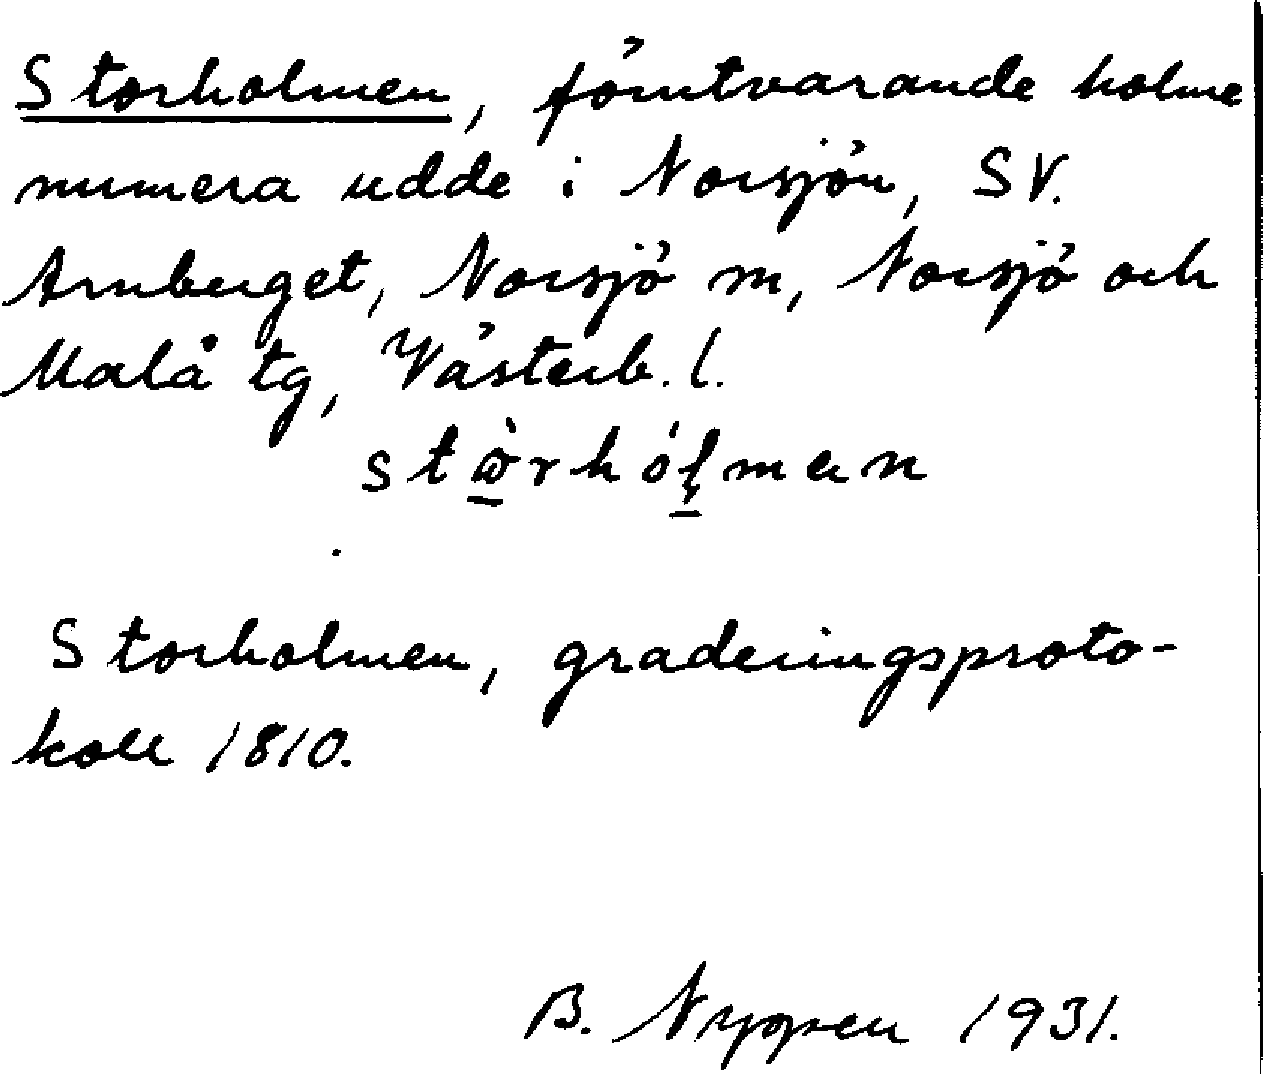 Storholmen, förutvarande holme
numera udde i Norsjön, SV.
Arnberget, Norsjö m, Norsjö och
Malå tg, Västerb. l.
Storholmen, graderingsproto-
koll 1810.
B. Nygren 1931.